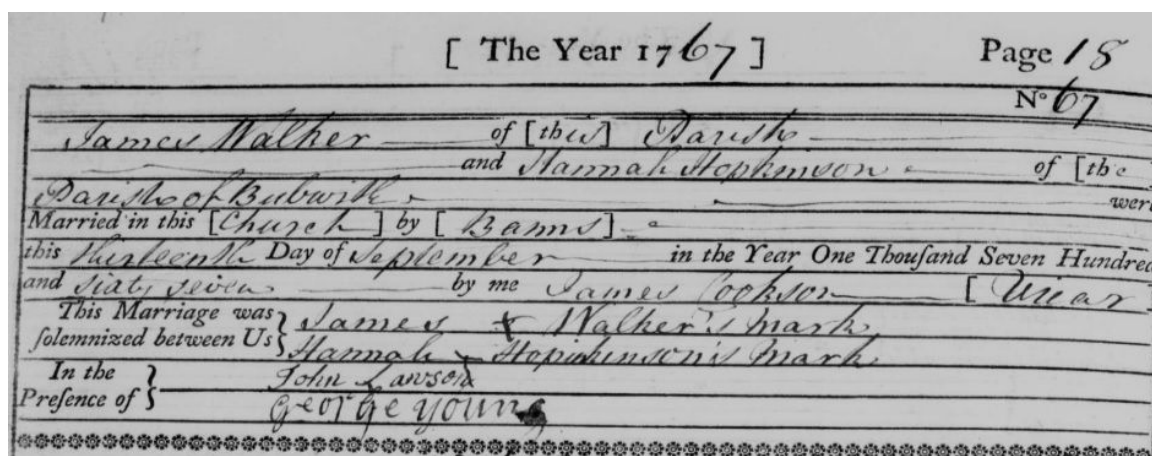 [ The Year 1767 ] Page 18
No 67
James Walker of [this] Parish
and Hannah Hopkinson of [the
Parish of Bubwith were
Married in this [Church] by [Banns]
this thirteenth Day of September in the Year One Thousand Seven Hundred
and sixty seven by me James Cookson [Vicar]
This Marriage was solemnized between Us } James + Walker's mark
Hannah - Hopkinson's mark
In the Presence of } John Lawson
George Young